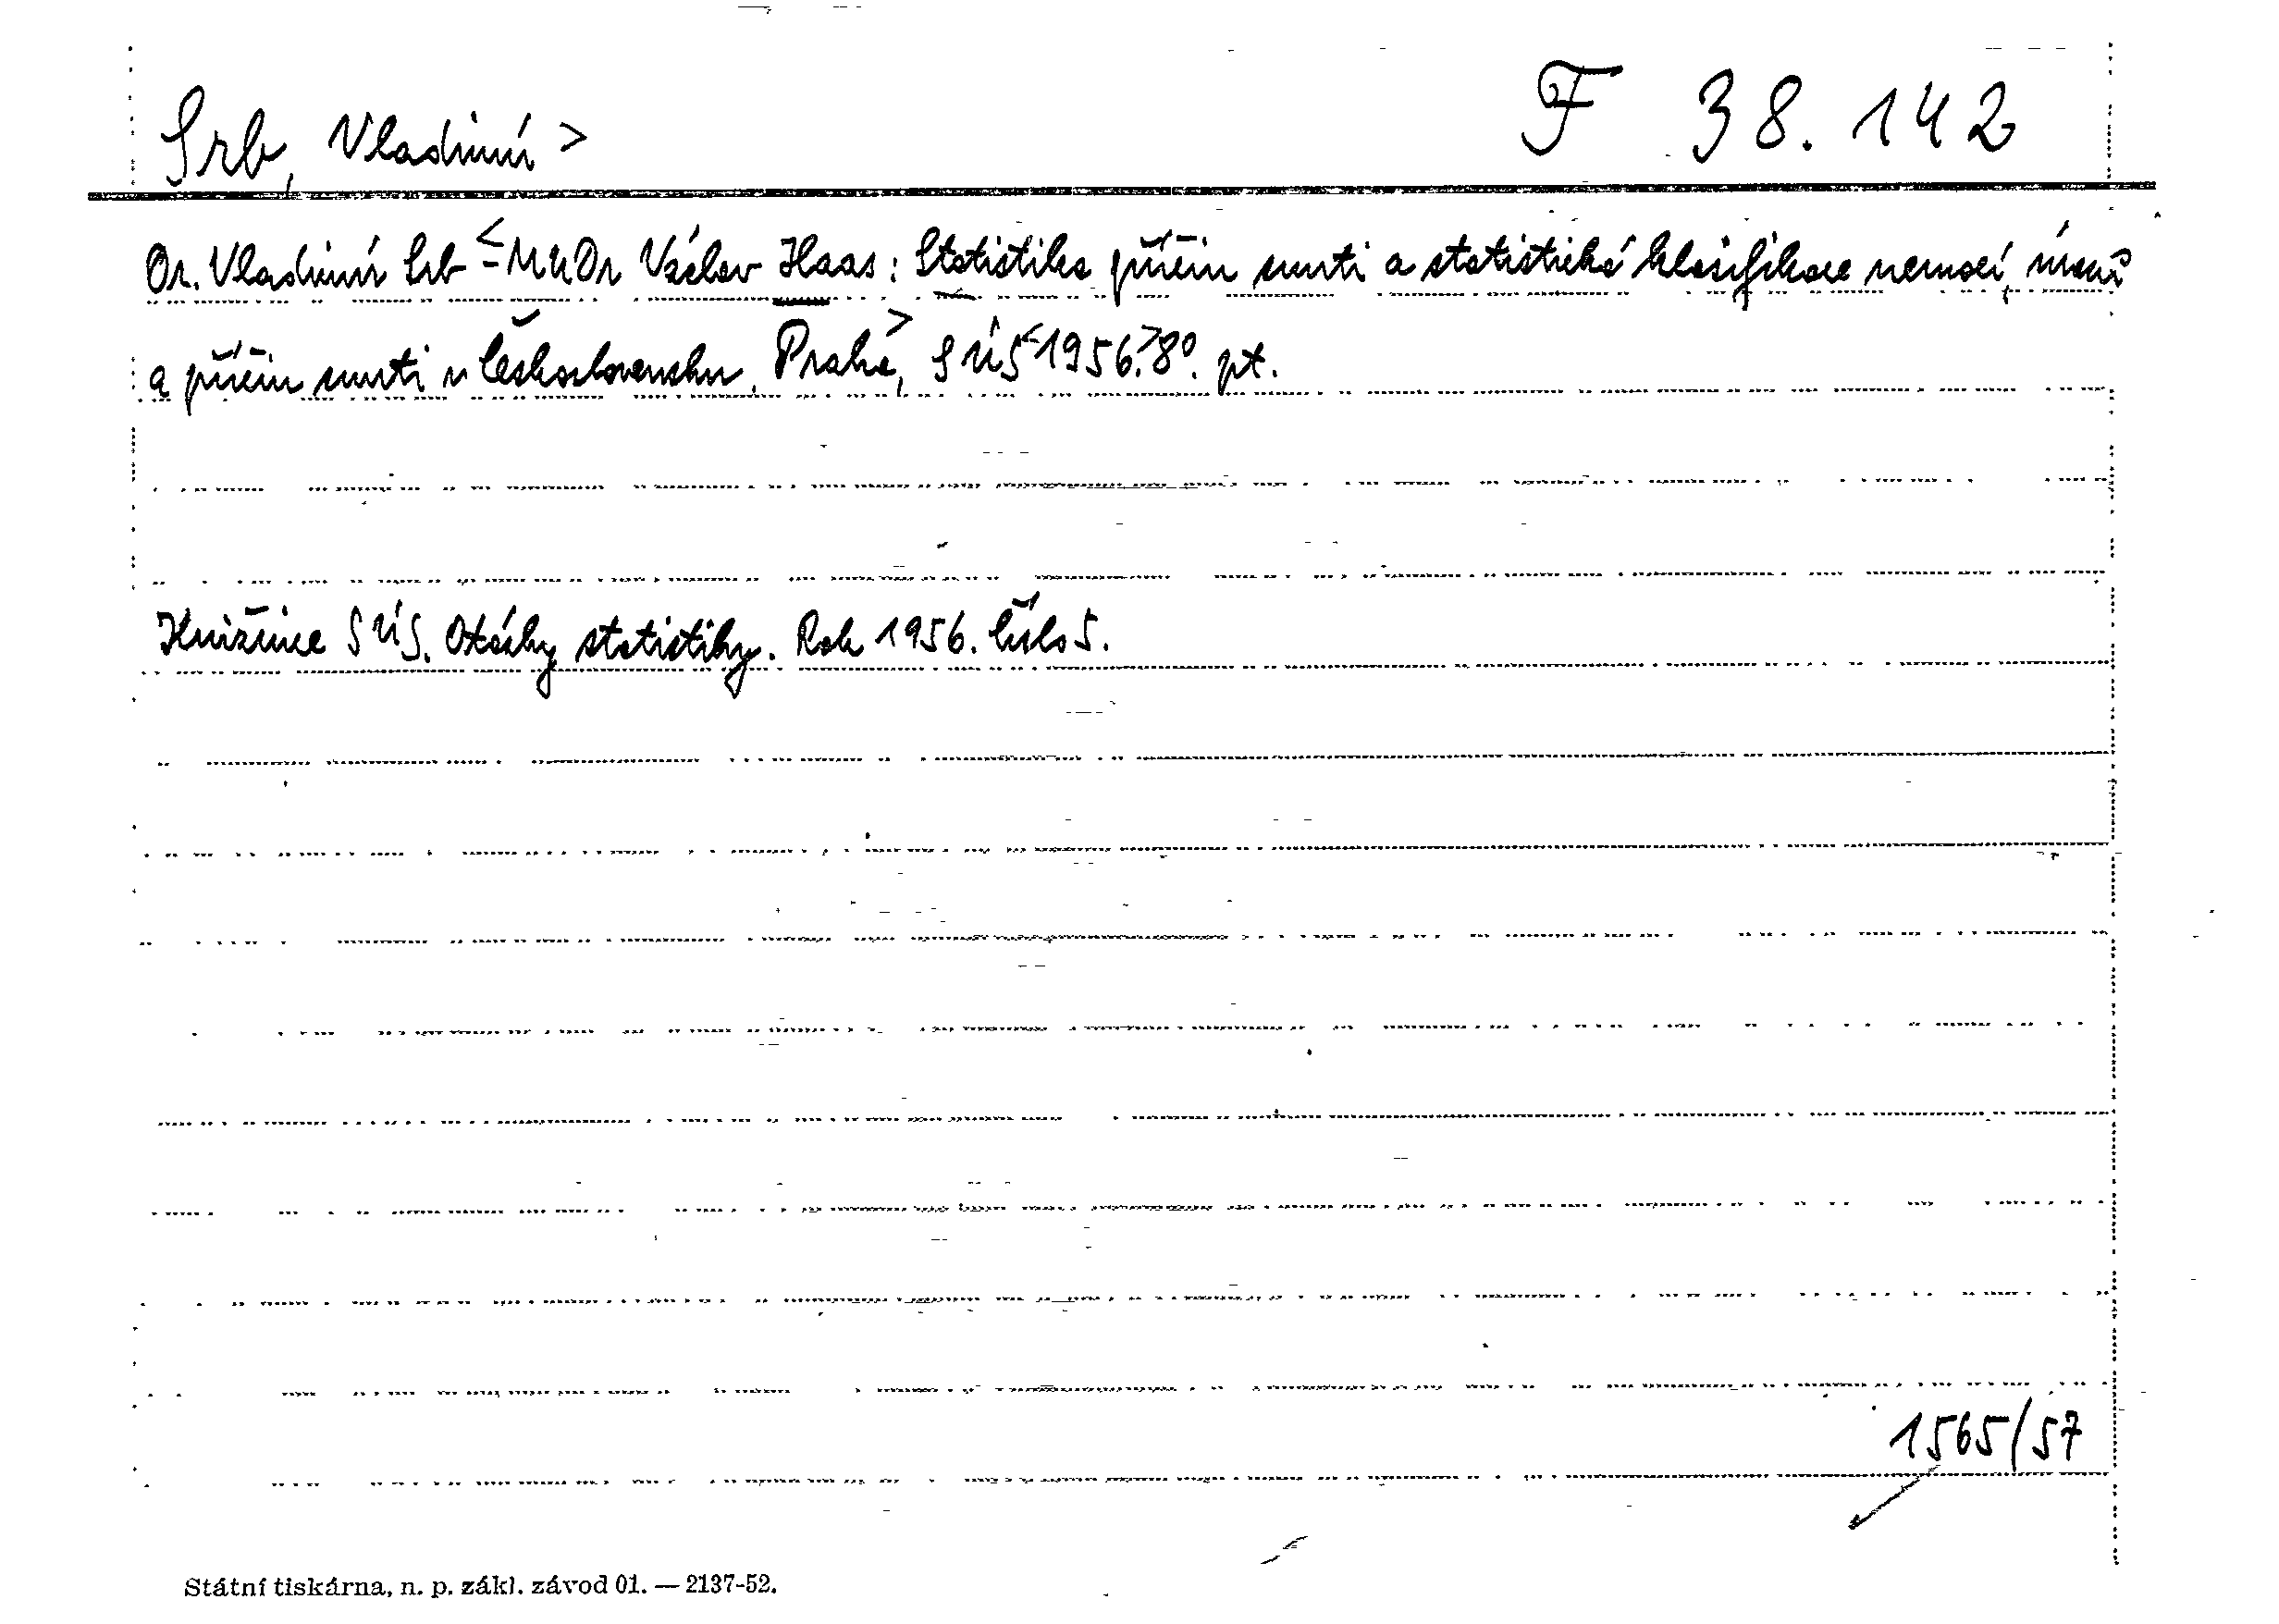 Srb, Vladimír >
F 38.142
Dr. Vladimír Srb <- MUDr Václav Haas: Statistika příčin smrti a statistická klasifikace nemocí, úrazů
a příčin smrti v Československu. Praha>, SÚS <1956.> 8°. pt.
Knižnice SÚS. Otázky statistiky. Rok 1956. Číslo 5.
1565/57
Státní tiskárna, n. p. zákl. závod 01. — 2137-52.